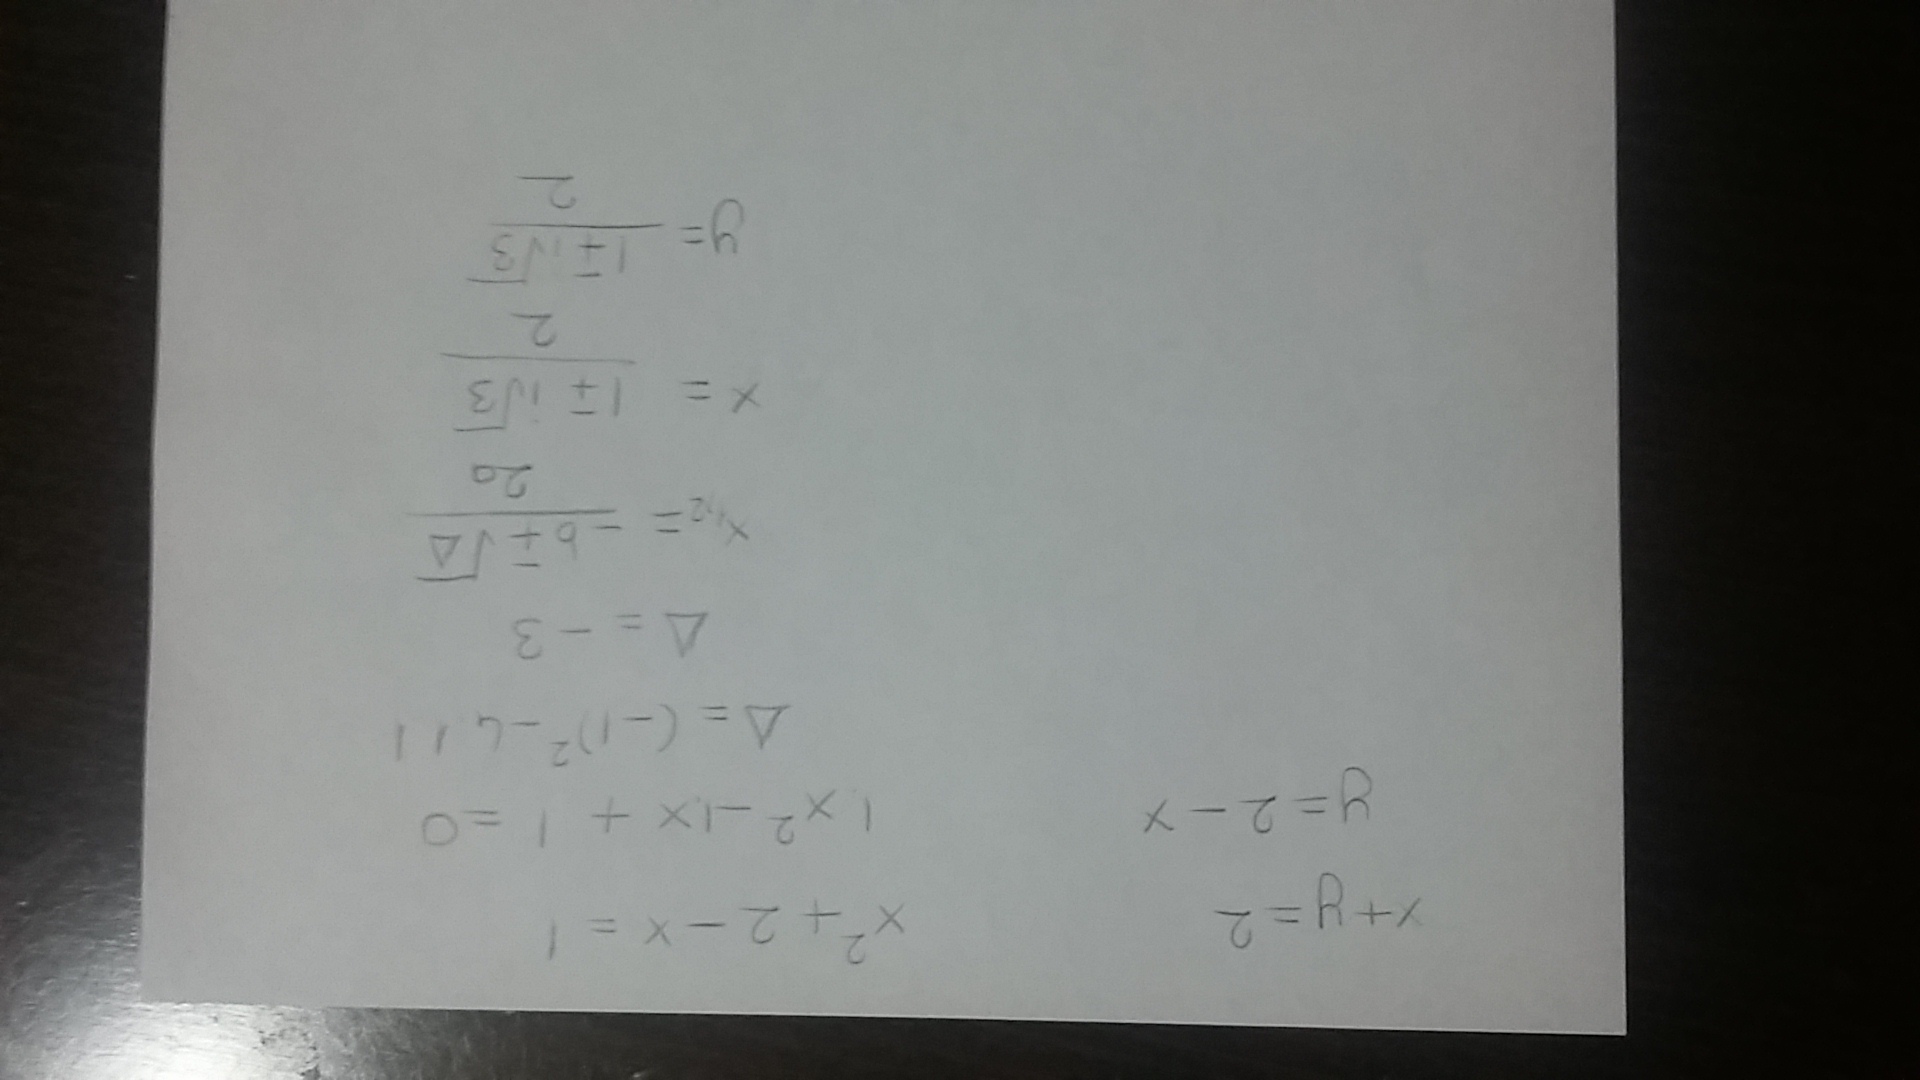 x+y=2
y=2-x
x²+2-x=1
1x²-1x+1=0
Δ=(-1)²-4.1 1
Δ=-3
x₁,₂= (-b∓√Δ)/2a
x = (1∓i√3)/2
y= (1∓i√3)/2